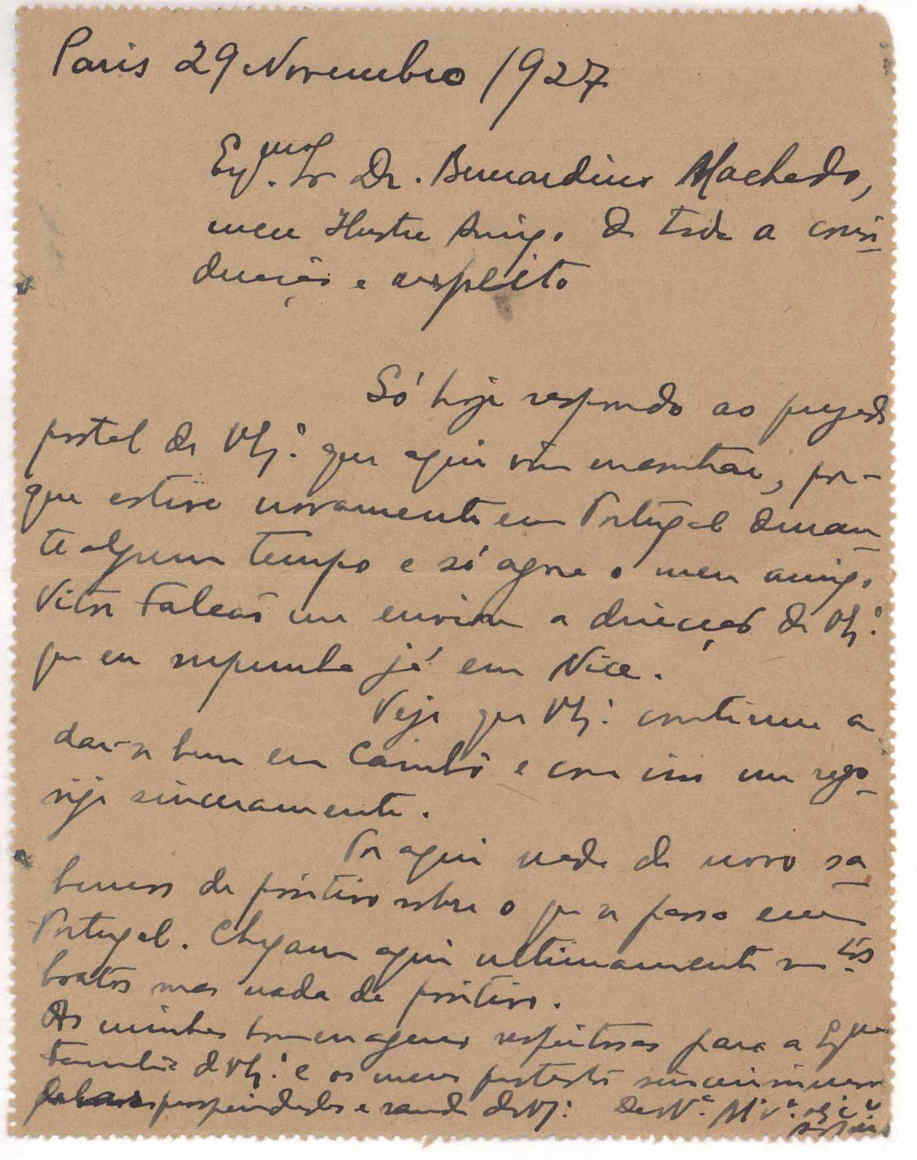 Paris 29 Novembro 1927
Exmo. Sr Dr. Bernardino Machado,
meu Ilustre Amigo de toda a consi-
deração e respeito
Só hoje respondo ao prezado
postal de V. Ex.ª que aqui vim encontrar, por-
que estive novamente em Portugal duran-
te algum tempo e só agora o meu amigo
Vitor Falcão me enviou a direcção de V. Ex.ª
que eu supunha já em Nice.
Vejo que V. Ex.ª continua a
dar-se bem em Cambô e com isso me rego-
sijo sinceramente.
Por aqui nada de novo sa-
bemos de positivo sobre o que se passa em
Portugal. Chegam aqui ultimamente mtos
boatos mas nada de positivo.
As minhas homenagens respeitosas para a Exma
Familia de V. Ex.ª e os meus protestos sincerissimos
prosperidades e saude de V. Ex.ª De V.ª